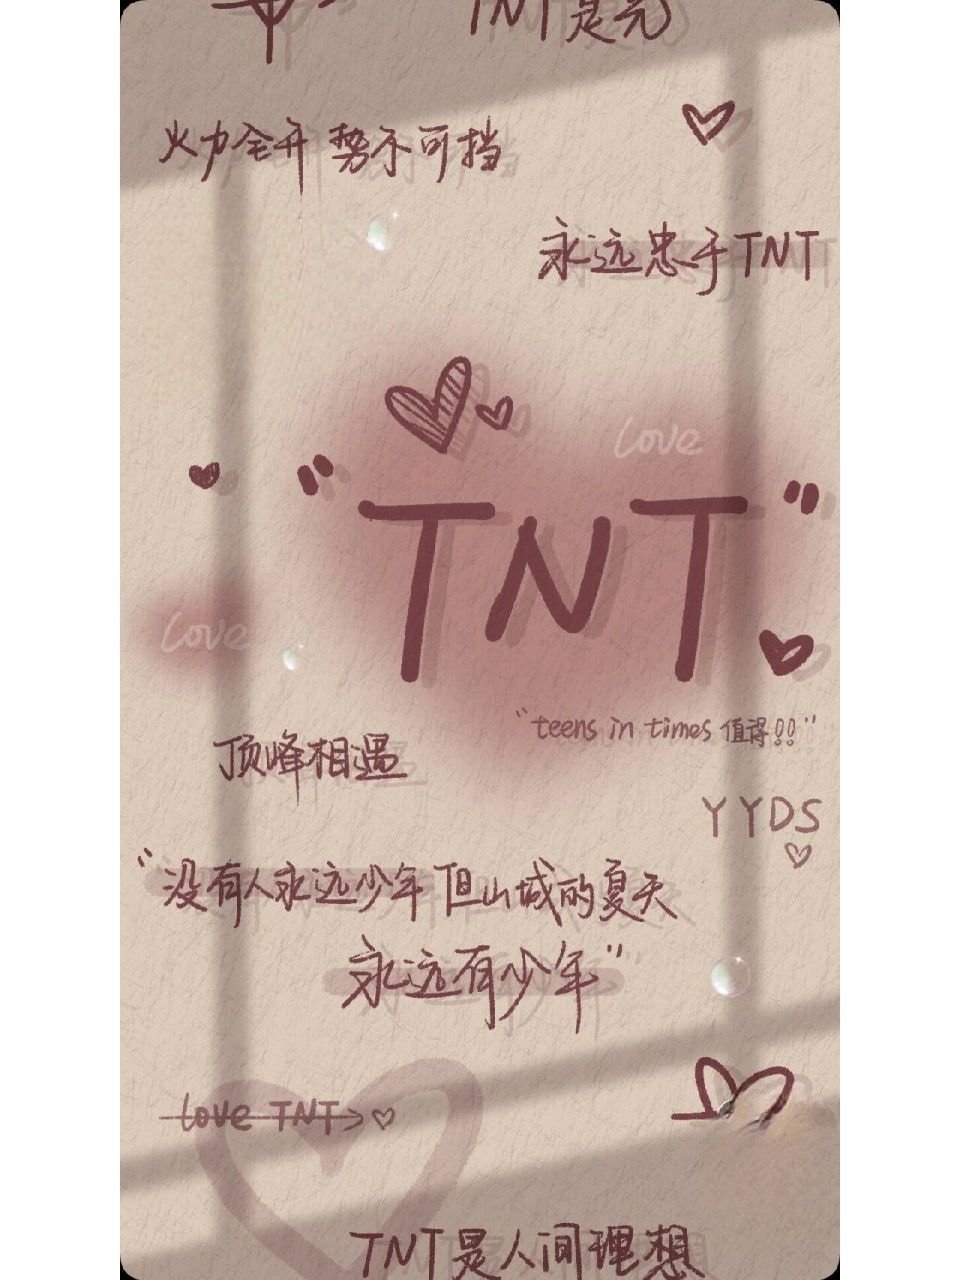 TNT是光
火力全开 势不可挡
永远忠于TNT
love
"TNT"
love
"teens in times 值得!!"
顶峰相遇
YYDS
"没有人永远少年 但山城的夏天
永远有少年"
love TNT
TNT是人间理想